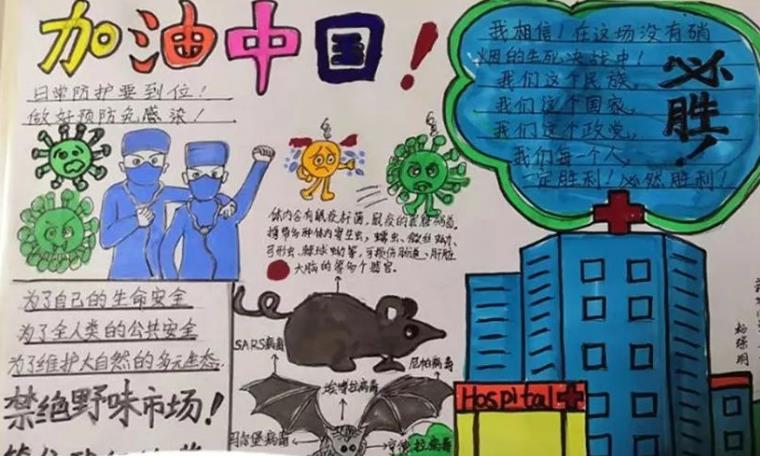 加油中国！
日常防护要到位！
做好预防免感染！
我相信！在这场没有硝
烟的生死决战中！
我们这个民族，
我们这个国家，
我们这个政党，
我们每一个人，
一定胜利！必然胜利！
必胜！
体内含有鼠疫杆菌，鼠疫的
大脑的等多个器官。
为了自己的生命安全
为了全人类的公共安全
为了维护大自然的多元生态
禁绝野味市场！
SARS病毒
尼帕病毒
埃博拉病毒
马尔堡病毒
亨德拉病毒
Hospital